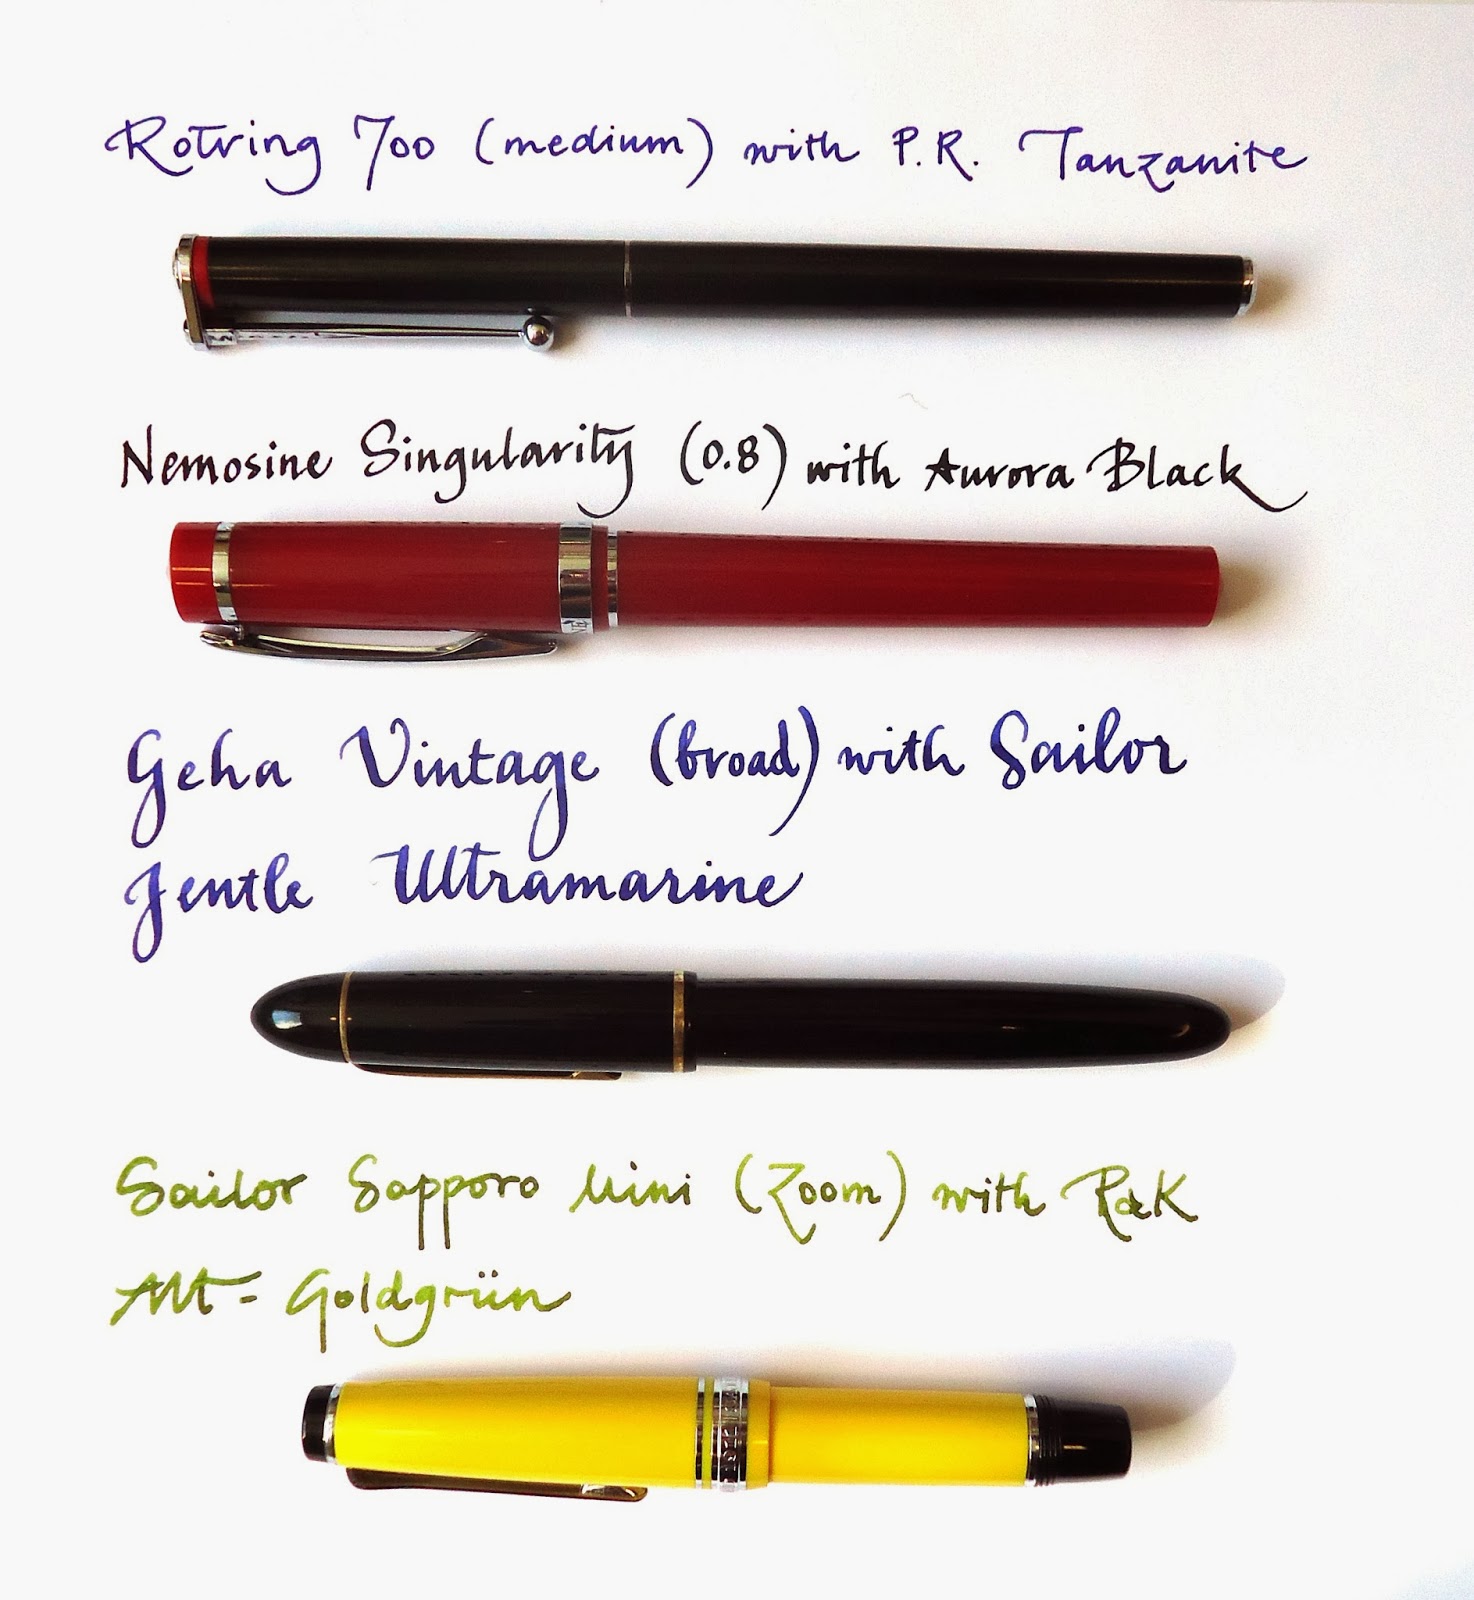 Rotring 700 (medium) with P.R. Tanzanite
Nemosine Singularity (0.8) with Aurora Black
Geha Vintage (broad) with Sailor
Jentle Ultramarine
Sailor Sapporo Mini (Zoom) with R&K
Alt-Goldgrün